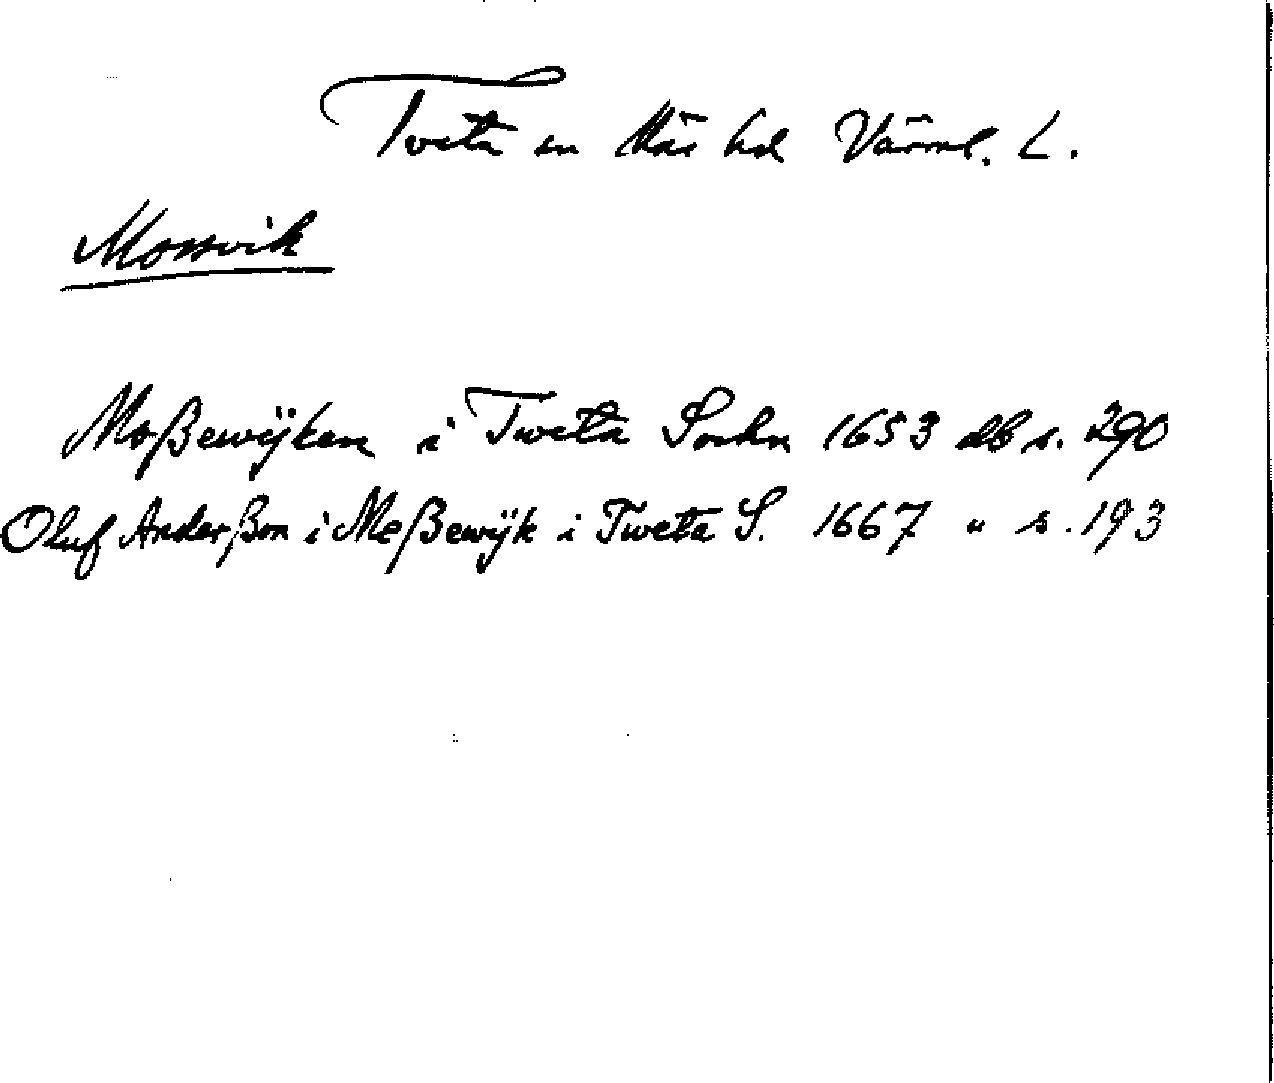 Tveta sn Näs hd Värml. L.
Mossvik
Moßewÿken i Tweta Sockn 1653 db s. 290
Oluf Anderßon i Meßewÿk i Tweta S. 1667 " s. 193